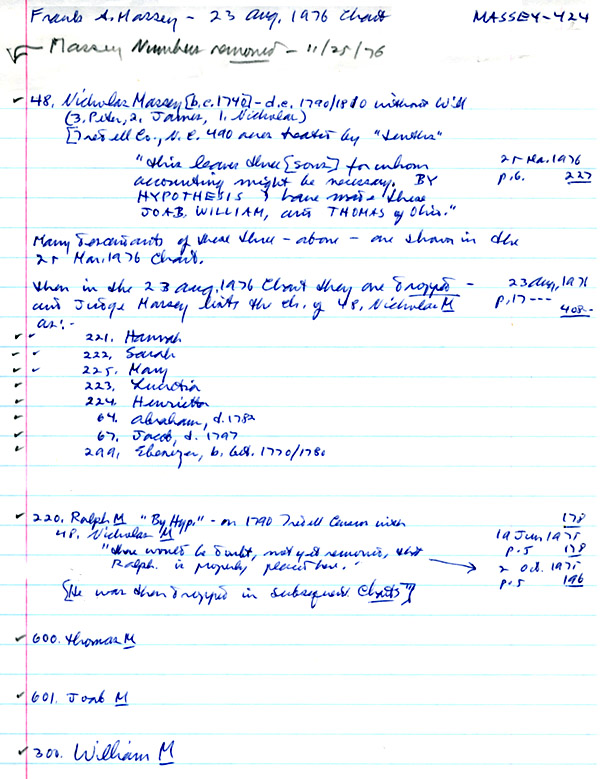 Frank A. Massey - 23 Aug. 1976 Chart MASSEY-424
Massey Numbers removed - 11/25/76
48. Nicholas Massey [b.c. 1740] - d.c. 1790/1810 without Will
(3. Peter, 2. James, 1. Nicholas)
[Iredell Co., N.C. 490 acres treated by "tenths"
"this leaves three [sons] for whom 25 Mar. 1976
accounting might be necessary. BY p. 6. 227
HYPOTHESIS I have made these
JOAB, WILLIAM, and THOMAS of Ohio."
Many descendants of these three - above - are shown in the
25 Mar. 1976 Chart.
Then in the 23 Aug. 1976 Chart they are dropped - 23 Aug. 1976
and Judge Massey lists the ch. of 48. Nicholas M p. 17 ---
as: - 408--
221. Hannah
222. Sarah
225. Mary
223. Lucretia
224. Henrietta
64. Abraham, d. 1782
67. Jacob, d. 1797
299. Ebenezer, b. bet. 1770/1780
220. Ralph M "By Hyp." - on 1790 Iredell Census with 178
48. Nicholas M 19 Jun 1975
"there would be doubt, not yet removed, that p. 5 178
Ralph is properly placed here." 2 Oct. 1975
p. 5 196
[He was then dropped in subsequent Charts?]
600. Thomas M
601. Joab M
300. William M